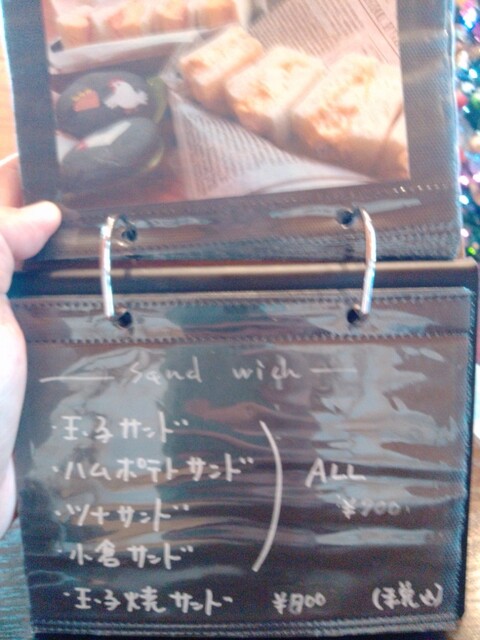 sand wich
・玉子サンド
・ハムポテトサンド
・ツナサンド
・小倉サンド
ALL
・玉子焼サンド ¥800